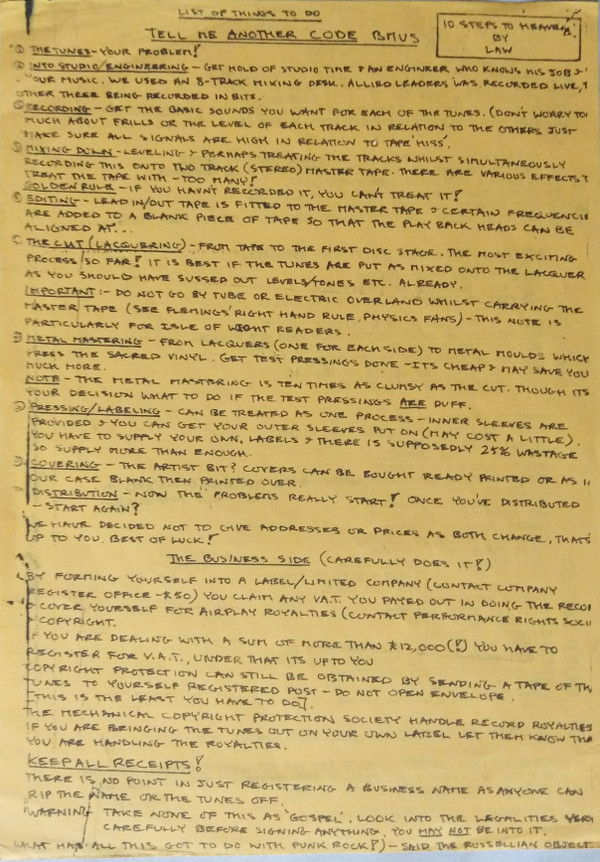 LIST OF THINGS TO DO
TELL ME ANOTHER CODE BMUS
10 STEPS TO HEAVEN
BY
LAW
THE TUNES - YOUR PROBLEM!
INTO STUDIO/ENGINEERING - GET HOLD OF STUDIO TIME & AN ENGINEER WHO KNOWS HIS JOB &
YOUR MUSIC. WE USED AN 8-TRACK MIXING DESK. 'ALLIED LEADERS' WAS RECORDED LIVE,
OTHER THREE BEING RECORDED IN BITS.
RECORDING - GET THE BASIC SOUNDS YOU WANT FOR EACH OF THE TUNES. (DON'T WORRY TOO
MUCH ABOUT FRILLS OR THE LEVEL OF EACH TRACK IN RELATION TO THE OTHERS JUST
MAKE SURE ALL SIGNALS ARE HIGH IN RELATION TO TAPE 'HISS'.
MIXING DOWN - LEVELING & PERHAPS TREATING THE TRACKS WHILST SIMULTANEOUSLY
RECORDING THIS ONTO TWO TRACK (STEREO) MASTER TAPE. THERE ARE VARIOUS EFFECTS T
TREAT THE TAPE WITH - TOO MANY!
GOLDEN RULE - IF YOU HAVN'T RECORDED IT, YOU CAN'T TREAT IT!
EDITING - LEAD IN/OUT TAPE IS FITTED TO THE MASTER TAPE & CERTAIN FREQUENCIE
ARE ADDED TO A BLANK PIECE OF TAPE SO THAT THE PLAY BACK HEADS CAN BE
ALIGNED AT...
THE CUT (LACQUERING) - FROM TAPE TO THE FIRST DISC STAGE. THE MOST EXCITING
PROCESS SO FAR! IT IS BEST IF THE TUNES ARE PUT AS MIXED ONTO THE LACQUER
AS YOU SHOULD HAVE SUSSED OUT LEVELS/TONES ETC. ALREADY.
IMPORTANT :- DO NOT GO BY TUBE OR ELECTRIC OVERLAND WHILST CARRYING THE
MASTER TAPE (SEE FLEMINGS' RIGHT HAND RULE, PHYSICS FANS) - THIS NOTE IS
PARTICULARLY FOR ISLE OF WIGHT READERS.
METAL MASTERING - FROM LACQUERS (ONE FOR EACH SIDE) TO METAL MOULDS WHICH
PRESS THE SACRED VINYL. GET TEST PRESSINGS DONE - ITS CHEAP & MAY SAVE YOU
MUCH MORE.
NOTE - THE METAL MASTERING IS TEN TIMES AS CLUMSY AS THE CUT. THOUGH ITS
YOUR DECISION WHAT TO DO IF THE TEST PRESSINGS ARE DUFF.
PRESSING/LABELING - CAN BE TREATED AS ONE PROCESS - INNER SLEEVES ARE
PROVIDED & YOU CAN GET YOUR OUTER SLEEVES PUT ON (MAY COST A LITTLE).
YOU HAVE TO SUPPLY YOUR OWN LABELS & THERE IS SUPPOSEDLY 25% WASTAGE
SO SUPPLY MORE THAN ENOUGH.
COVERING - THE ARTIST BIT? COVERS CAN BE BOUGHT READY PRINTED OR AS I
OUR CASE BLANK THEN PRINTED OVER.
DISTRIBUTION - NOW THE PROBLEMS REALLY START! ONCE YOU'VE DISTRIBUTED
- START AGAIN?
WE HAVE DECIDED NOT TO GIVE ADDRESSES OR PRICES AS BOTH CHANGE, THATS
UP TO YOU. BEST OF LUCK!
THE BUSINESS SIDE (CAREFULLY DOES IT!)
BY FORMING YOURSELF INTO A LABEL/LIMITED COMPANY (CONTACT COMPANY
REGISTER OFFICE - £50) YOU CLAIM ANY V.A.T. YOU PAYED OUT IN DOING THE RECO
& COVER YOURSELF FOR AIRPLAY ROYALTIES (CONTACT PERFORMANCE RIGHTS SOCI
& COPYRIGHT.
IF YOU ARE DEALING WITH A SUM OF MORE THAN £12,000(!) YOU HAVE TO
REGISTER FOR V.A.T., UNDER THAT ITS UP TO YOU
COPYRIGHT PROTECTION CAN STILL BE OBTAINED BY SENDING A TAPE OF TH
TUNES TO YOURSELF REGISTERED POST - DO NOT OPEN ENVELOPE.
[THIS IS THE LEAST YOU HAVE TO DO].
THE MECHANICAL COPYRIGHT PROTECTION SOCIETY HANDLE RECORD ROYALTIES
IF YOU ARE BRINGING THE TUNES OUT ON YOUR OWN LABEL LET THEM KNOW THA
YOU ARE HANDLING THE ROYALTIES.
KEEP ALL RECEIPTS!
THERE IS NO POINT IN JUST REGISTERING A BUSINESS NAME AS ANYONE CAN
RIP THE NAME OR THE TUNES OFF.
WARNING TAKE NONE OF THIS AS 'GOSPEL'. LOOK INTO THE LEGALITIES VERY
CAREFULLY BEFORE SIGNING ANYTHING. YOU MAY NOT BE INTO IT.
WHAT HAS ALL THIS GOT TO DO WITH PUNK ROCK?) - SAID THE RUSSELLIAN OBJECT.